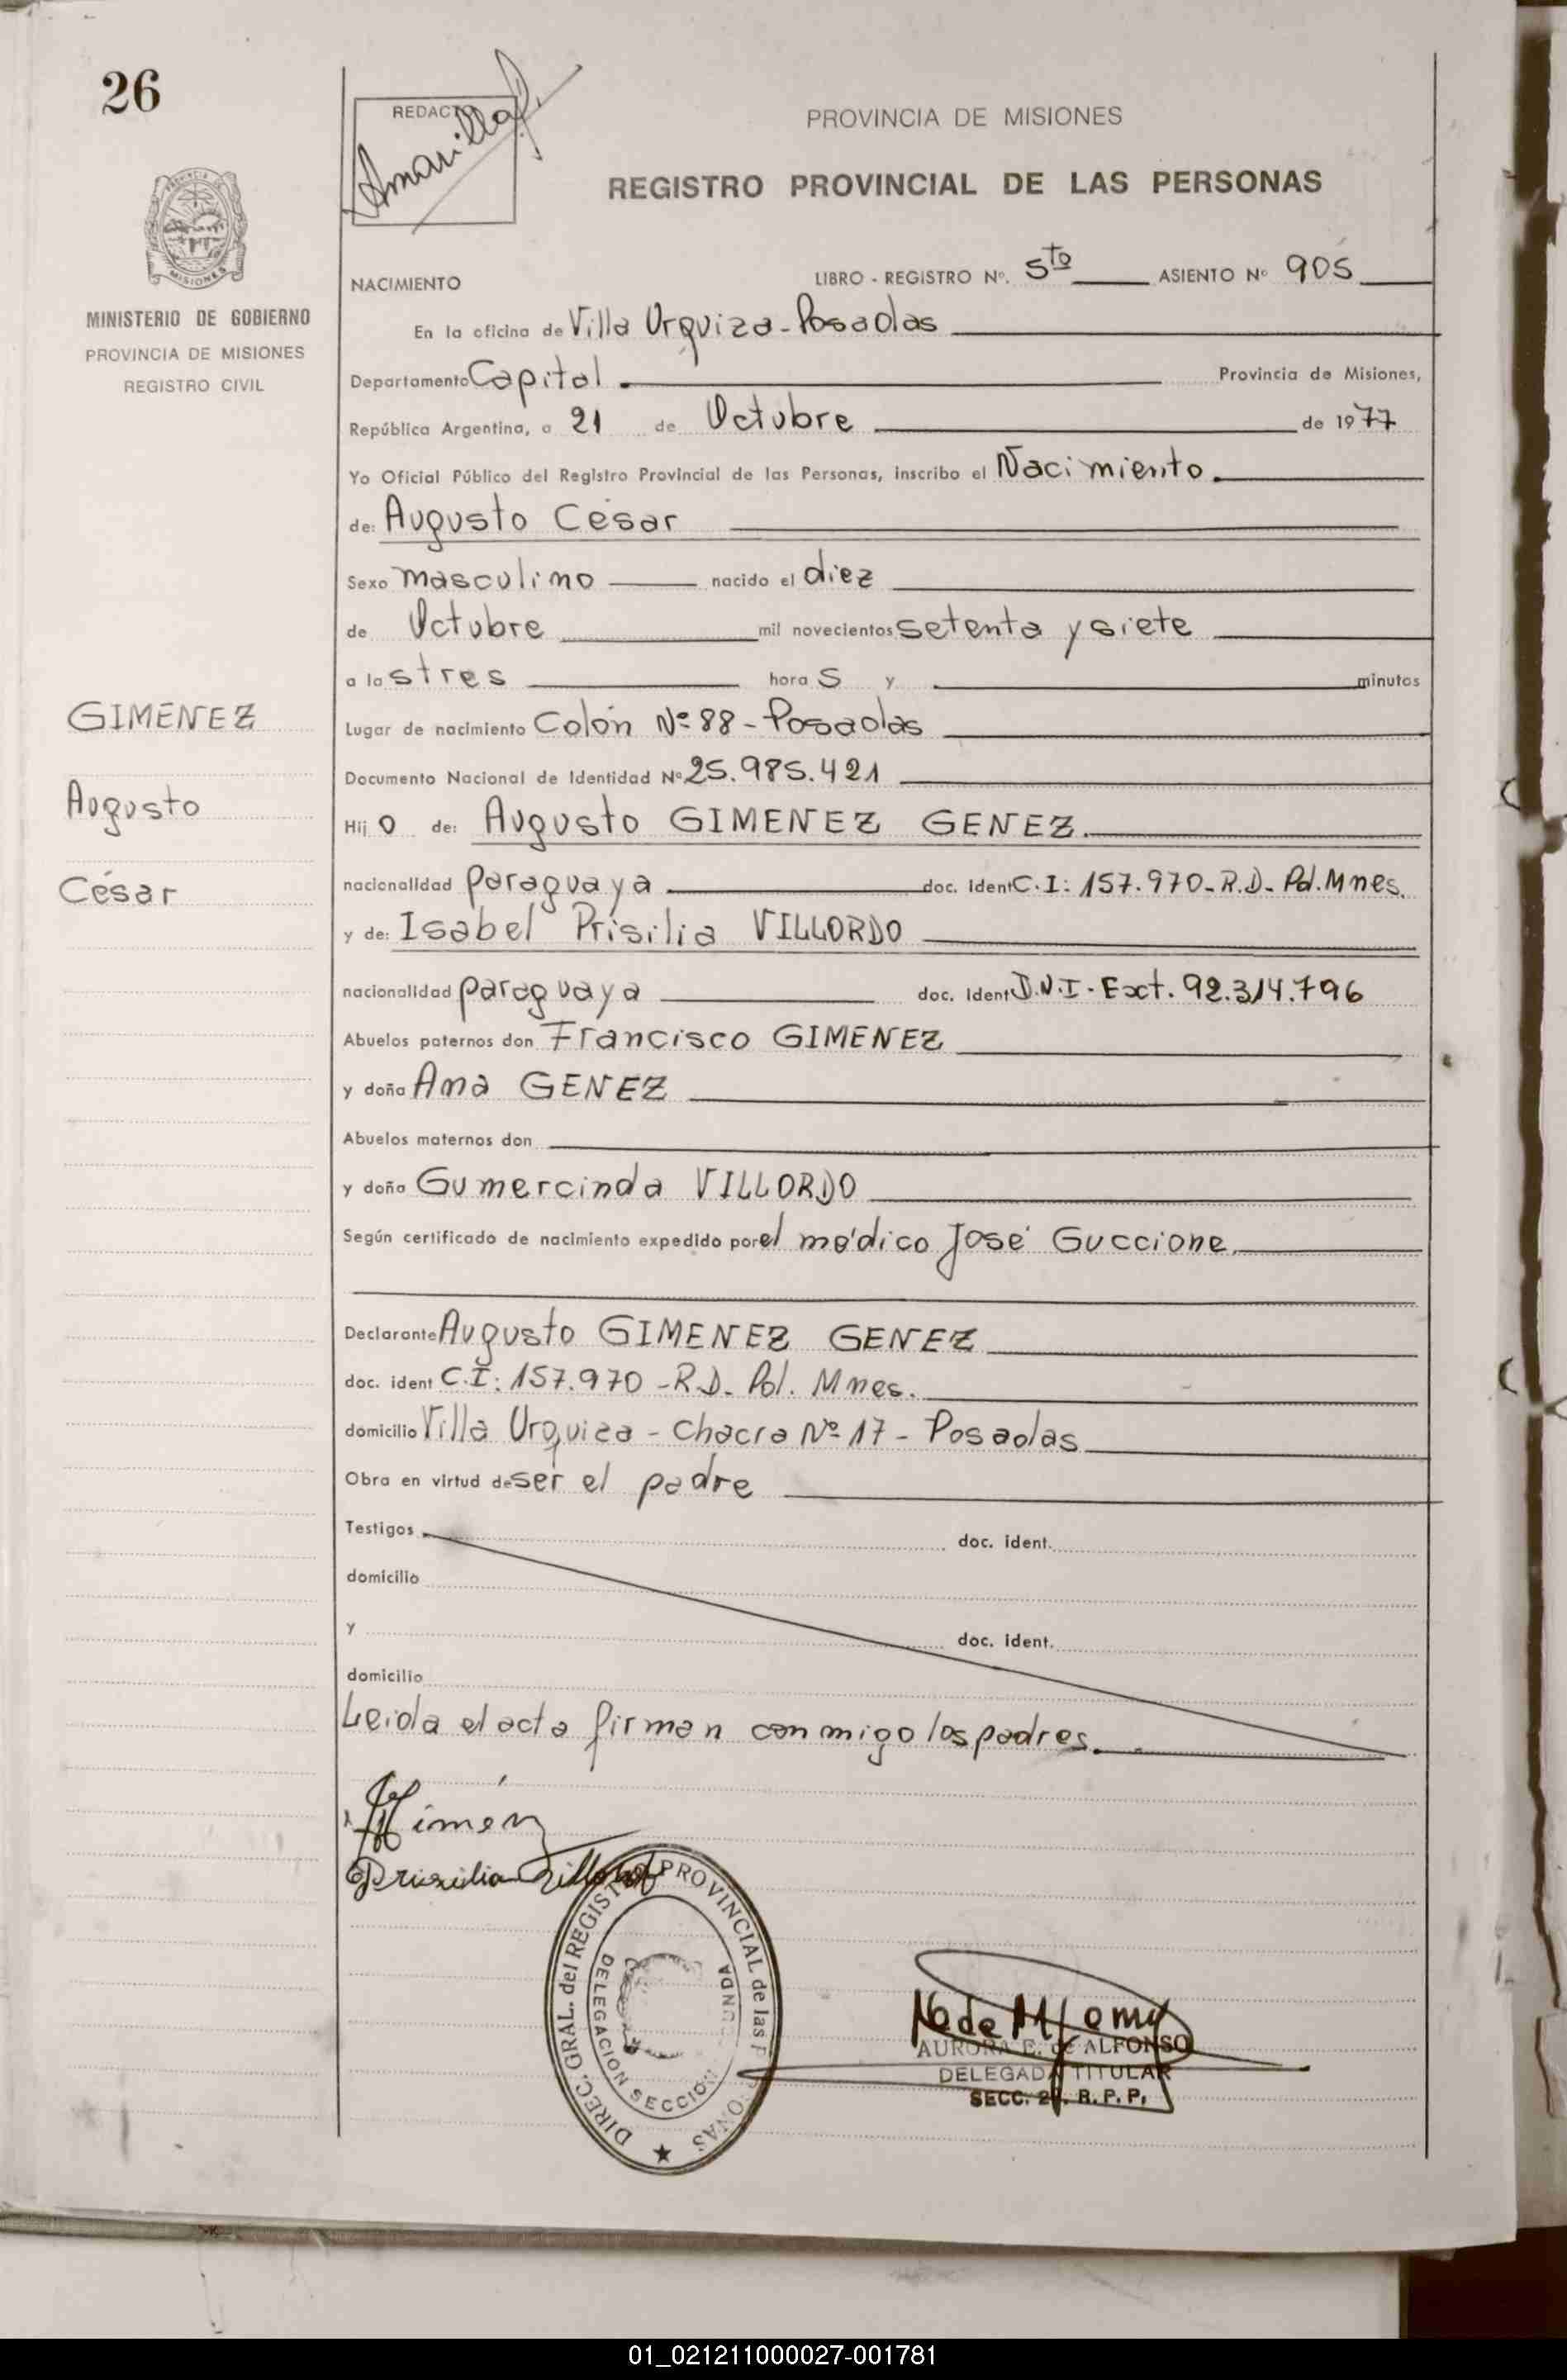 26
REDACTO
Amarilla
PROVINCIA DE MISIONES
REGISTRO PROVINCIAL DE LAS PERSONAS
MISIONES
MINISTERIO DE GOBIERNO
PROVINCIA DE MISIONES
REGISTRO CIVIL
NACIMIENTO LIBRO - REGISTRO Nº. 5to ASIENTO Nº 905
En la oficina de Villa Urquiza - Posadas
Departamento Capital. Provincia de Misiones,
República Argentina, a 21 de Octubre de 1977
Yo Oficial Público del Registro Provincial de las Personas, inscribo el Nacimiento.
de: Augusto César
Sexo masculino nacido el diez
de Octubre mil novecientos setenta y siete
a las tres horas y minutos
GIMENEZ
Lugar de nacimiento Colón Nº 88 - Posadas
Documento Nacional de Identidad Nº 25.985.421
Augusto
Hijo de: Augusto GIMENEZ GENEZ.
César
nacionalidad paraguaya doc. ident C.I: 157.970 - R.D - Pol. Mnes.
y de: Isabel Prisilia VILLORDO
nacionalidad paraguaya doc. ident D.N.I - Ext. 92.314.796
Abuelos paternos don Francisco GIMENEZ
y doña Ana GENEZ
Abuelos maternos don
y doña Gumercinda VILLORDO
Según certificado de nacimiento expedido por el médico José Guccione.
Declarante Augusto GIMENEZ GENEZ
doc. ident C.I: 157.970 - R.D - Pol. Mnes.
domicilio Villa Urquiza - Chacra Nº 17 - Posadas
Obra en virtud de ser el padre
Testigos doc. ident.
domicilio
y doc. ident.
domicilio
Leida el acta firman conmigo los padres.
Prisilia Villordo
DIREC. GRAL. del REGISTRO PROVINCIAL de las PERSONAS
DELEGACION SECCION
AURORA E. de ALFONSO
DELEGADA TITULAR
SECC. 2ª. R. P. P.
01_021211000027-001781